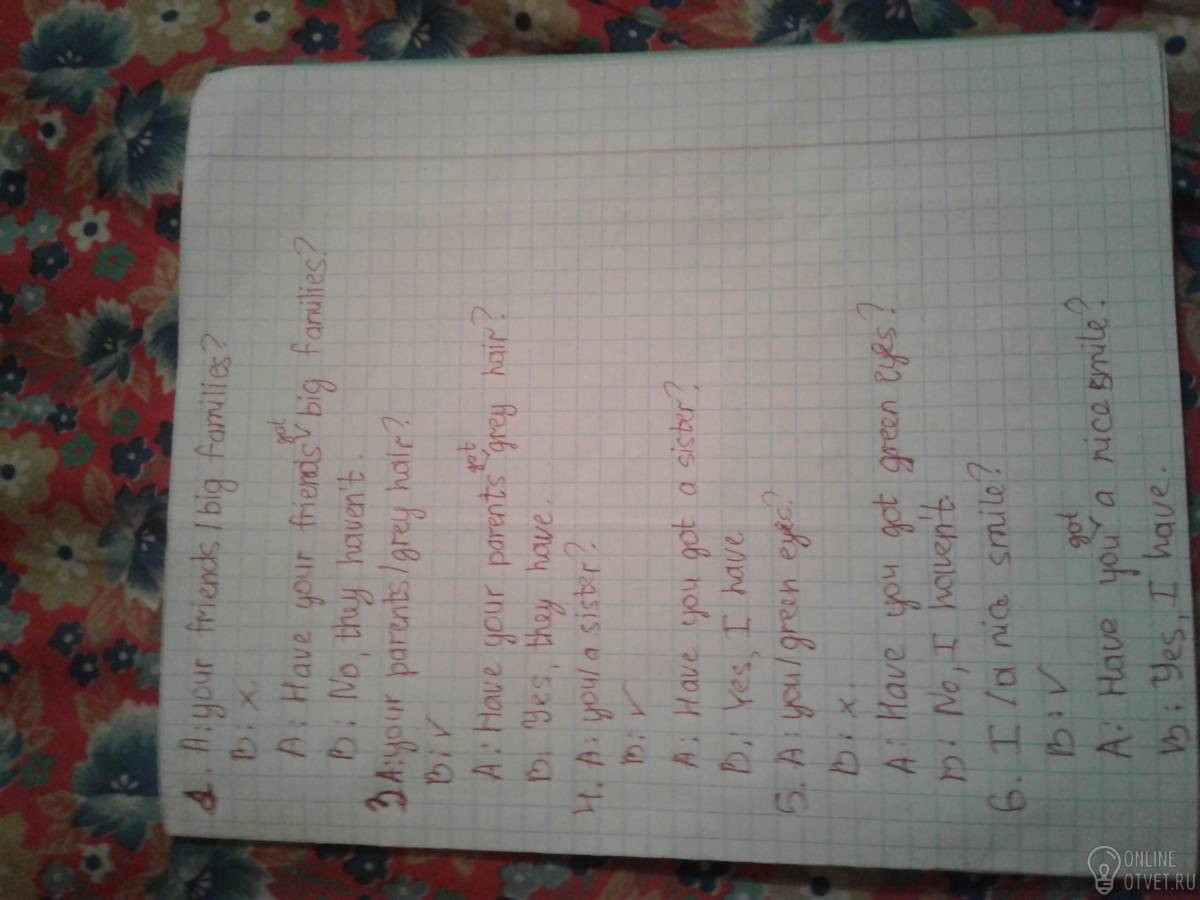 1. A: your friends/big families?
B: x.
A: Have your friends got big families?
B: No, they haven't.
3 A: your parents/grey hair?
B: ✓
A: Have your parents got grey hair?
B: Yes, they have.
4. A: you/a sister?
B: ✓
A: Have you got a sister?
B: Yes, I have
5. A: you/green eyes?
B: x
A: Have you got green eyes?
B: No, I haven't.
6. I/a nice smile?
B: ✓
A: Have you got a nice smile?
B: Yes, I have.
ONLINE
OTVET.RU